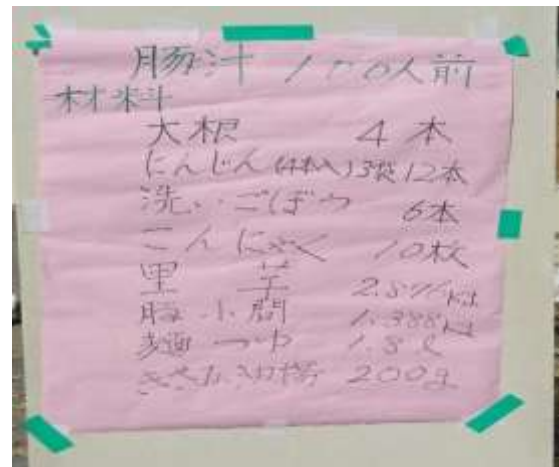 豚汁 100人前
材料
大根 4本
にんじん(4本入)3袋12本
洗いごぼう 6本
こんにゃく 10枚
里芋 2.871kg
豚小間 1.388kg
麺つゆ 1.8ℓ
200g